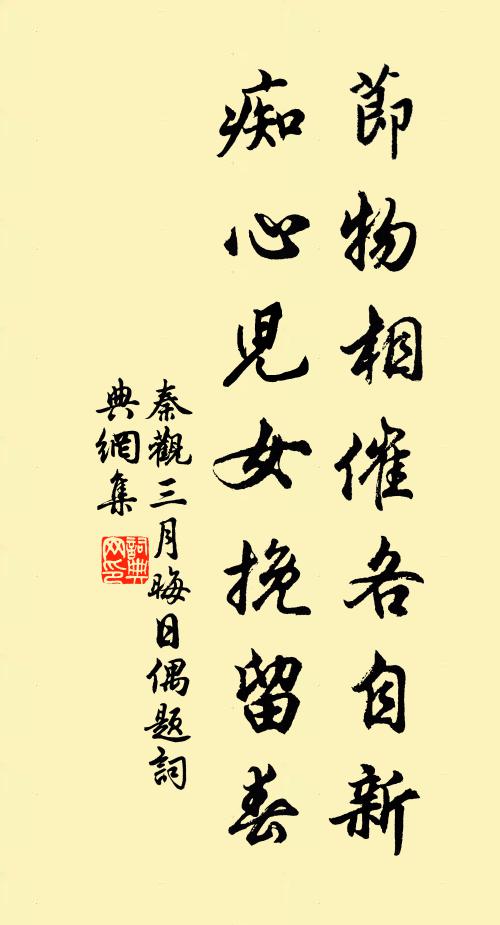 節物相催各自新
痴心児女挽留春
秦觀三月晦日偶題詞
典網集
詞典网印